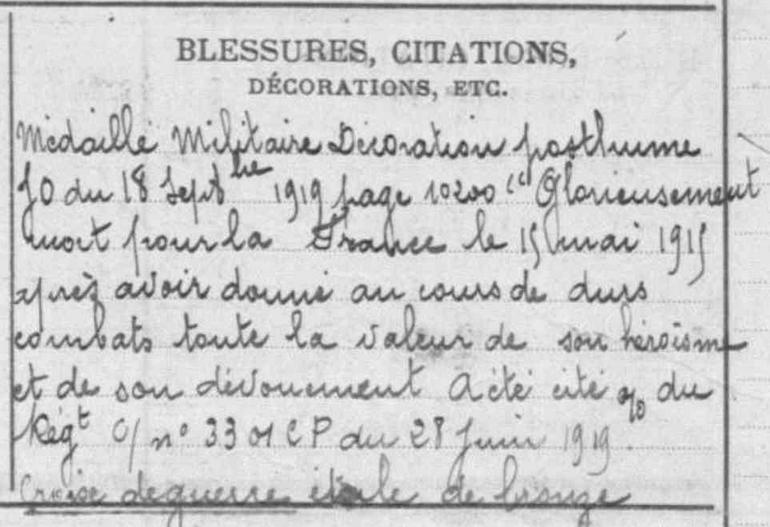 BLESSURES, CITATIONS,
DÉCORATIONS, ETC.
Médaille Militaire Décoration posthume
JO du 18 Septbre 1919 page 10200 "Glorieusement
mort pour la France le 15 mai 1915
après avoir donné au cours de durs
combats toute la valeur de son héroïsme
et de son dévouement A été cité du
Régt n° 33 du 28 Juin 1919.
Croix de guerre étoile de bronze